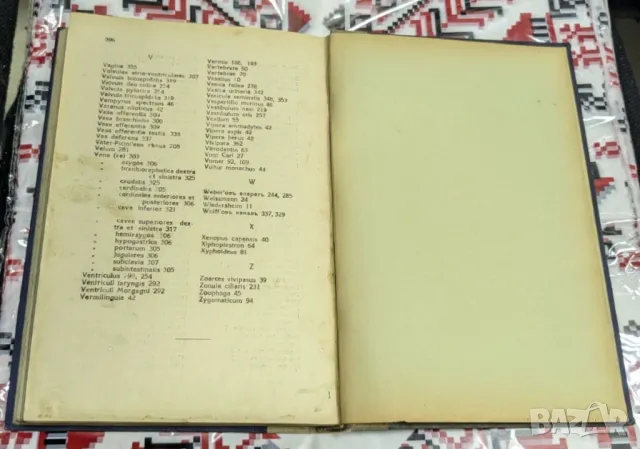 396
V
Vagina 355
Valvules atrio-ventriculares 307
Valvula bicuspidalis 319
Valvula ileo colica 254
Valvula pylorica 254
Valvula tricuspidalis 319
Vampyrus spectrum 46
Varanus niloticus 42
Vasa afferentia 309
Vasa branchialia 300
Vasa efferentia 309
Vasa efferentia testis 339
Vas deferens 337
Vater-Pacini'ева 208
Velum 281
Vena (ae) 303
" azygos 306
" brachiocephalica dextra
et sinistra 325
" caudalis 325
" cardinalis 305
" cardinales anteriores et
posteriores 306
" cava inferior 321
" cavae superiores dex
tra et sinistra 317
" hemiazygos 306
" hypogastrica 306
" portarum 305
" jugulares 306
" subclavia 307
" subintestinalis 305
Ventriculus 254
Ventriculi laryngis 292
Ventriculi Morgagni 292
Vermilinguia 42
Vermis 186, 188
Vertebrata 50
Vertebrae 70
Vesalius 10
Vesica fellea 276
Vesica urinaria 342
Vesicula seminalis 346, 353
Vespertilio murinus 46
Vestibulum nasi 219
Vestibulum oris 237
Vexillum 55
Vipera ammodytes 42
Vipera aspis 42
Vipera berus 42
Vivipara 362
Vitrodentin 63
Vogt Carl 27
Vomer 92, 109
Vultur monachus 44
W
Weber'овъ апаратъ 244, 285
Weissmann 24
Wiedersheim 11
Wolff'овъ каналъ 337, 329
X
Xenopus capensis 40
Xiphiplastron 64
Xyphoideus 81
Z
Zoarces viviparus 39
Zonula ciliaris 231
Zoophaga 45
Zygomaticum 94
BAZAR